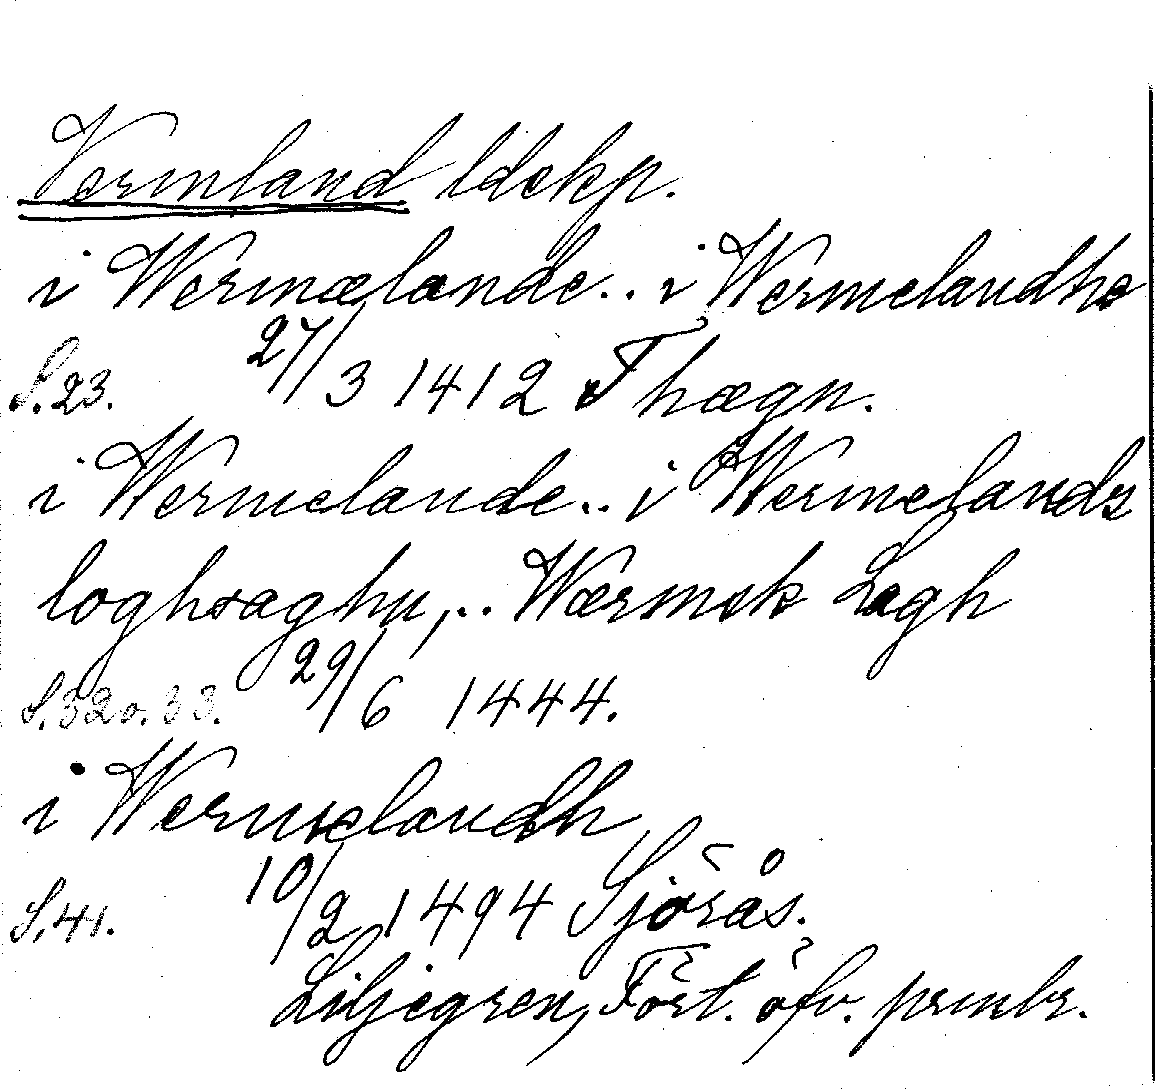 Vermland ldskp.
i Wermælande.. i Wermelandhe
S. 23. 27/3 1412 Thægn.
i Wermelande.. i Wermelands
loghsaghu,.. Wærmsk Lagh
S. 32 o. 33. 29/6 1444.
i Wermelandh
S. 41. 10/2 1494 Sjörås.
Liljegren, Fört. öfv. prmbr.